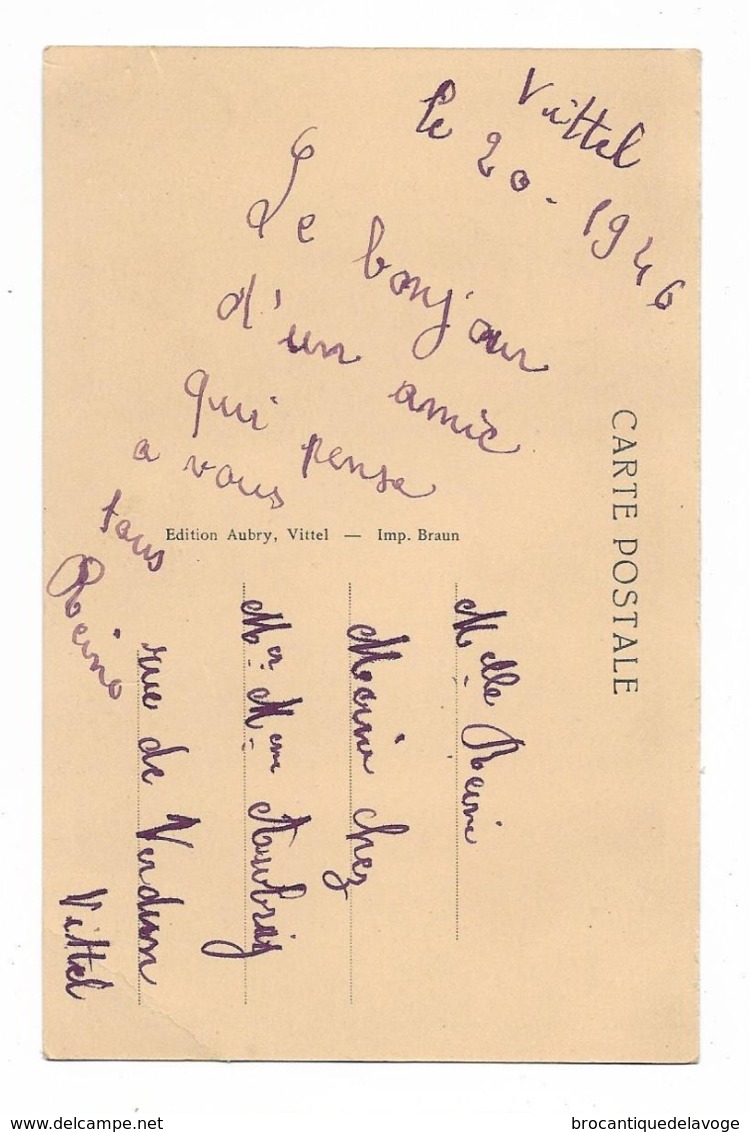 CARTE POSTALE
Vittel
le 20 - 1946
Le bonjour
d'un amie
qui pense
a vous
tous
Reine
Edition Aubry, Vittel — Imp. Braun
Melle Reine
chez
Mr. Mme
rue de Verdun
Vittel
brocantiquedelavoge
www.delcampe.net